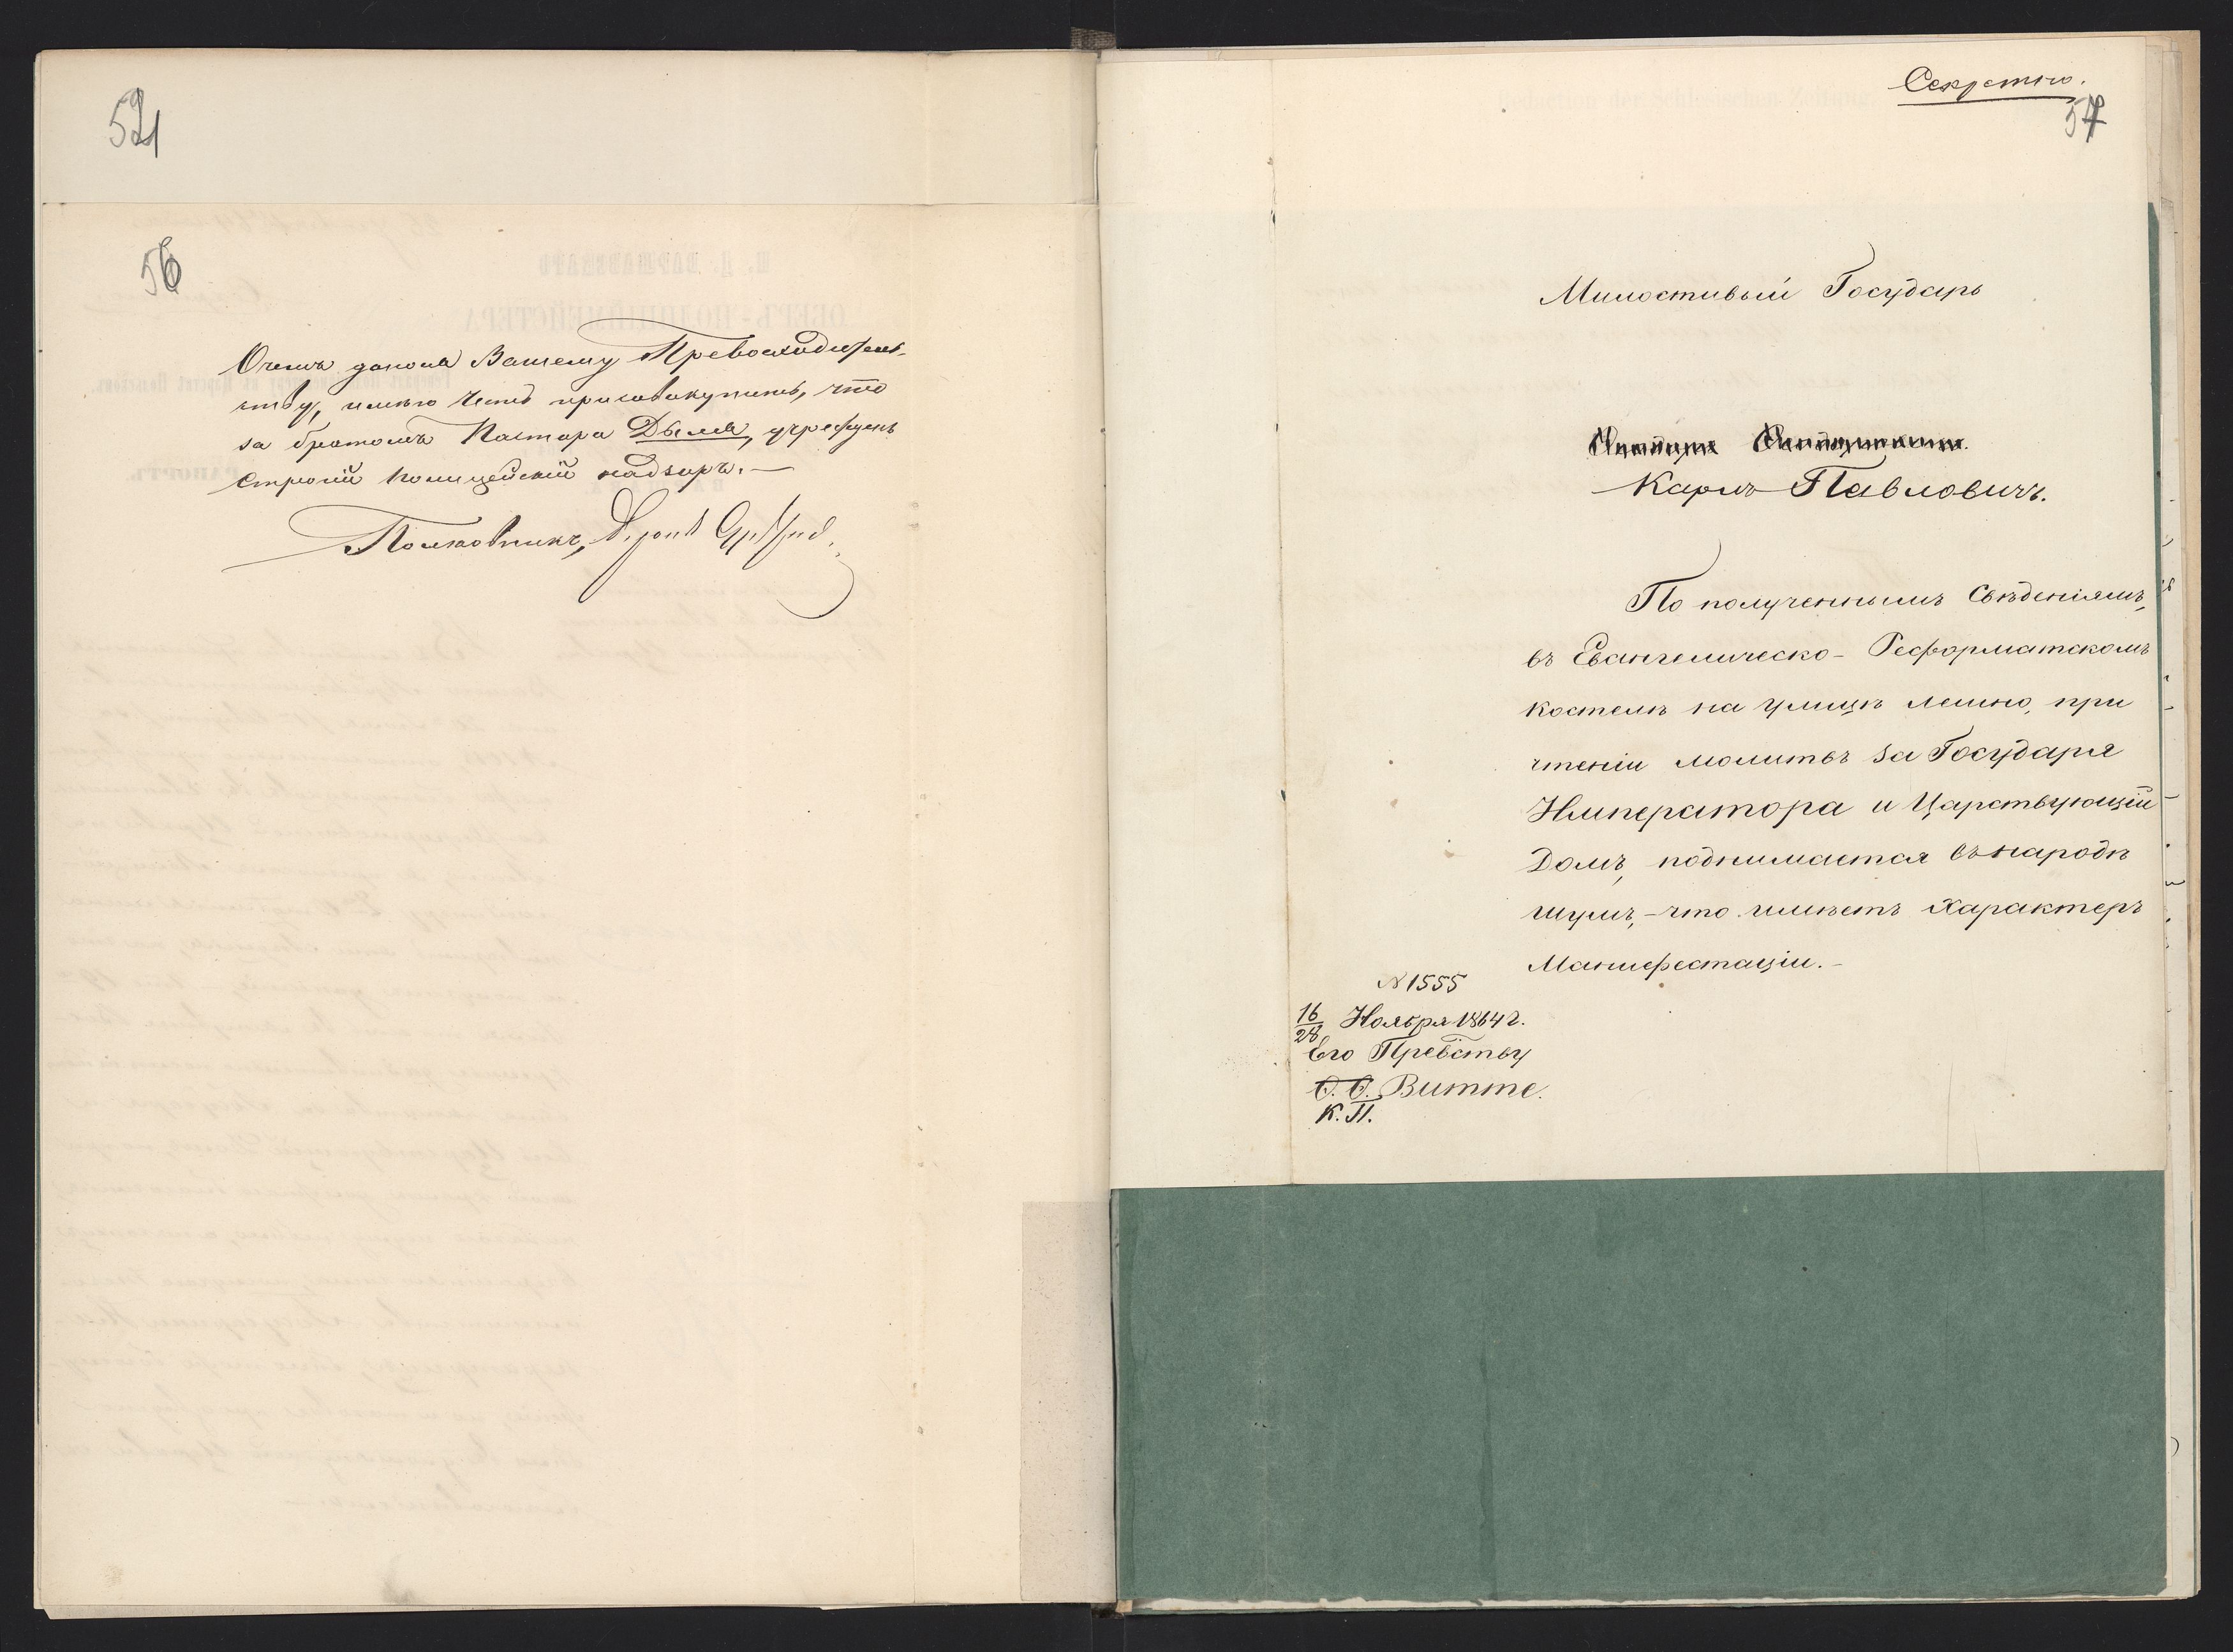 52
56
О чемъ донося Вашему Превосходитель-
ству, имѣю честь присовокупить, что
за братомъ Пастора Дыма, учрежденъ
строгій полицейскій надзоръ. —
Полковникъ,
Секретно.
57
Милостивый Государь
Карлъ Павловичъ.
По полученнымъ свѣденіямъ,
въ Евангелическо-Реформатскомъ
костелѣ на улицѣ Лешно, при
чтеніи молитвъ за Государя
Императора и Царствующій
Домъ, поднимается въ народѣ
шумъ, - что имѣетъ характеръ
Манифестаціи. -
№ 1555
16/28 Ноября 1864 г.
Его Прев̃ству
Ѳ. Ѳ. Витте.
К. П.